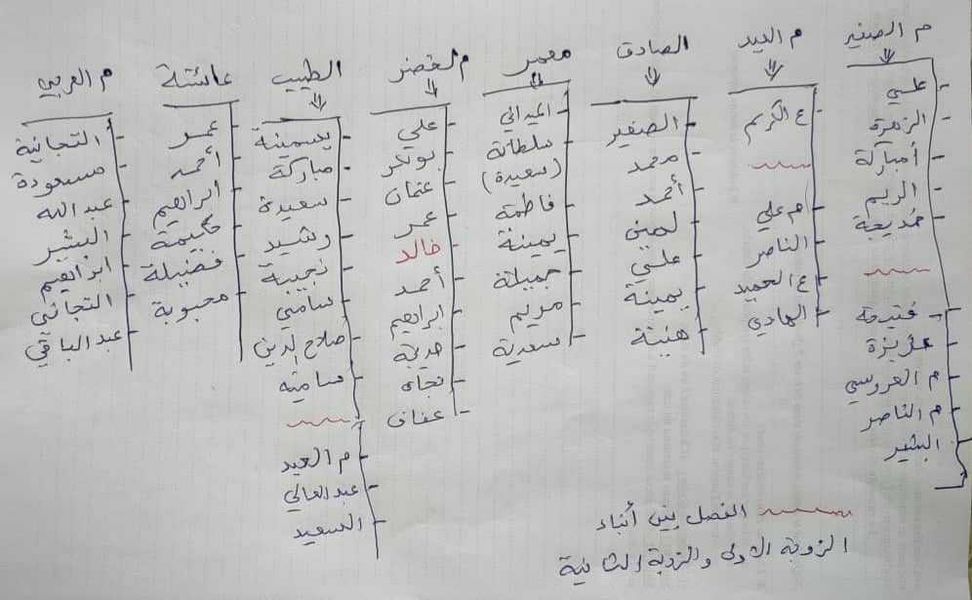 م الصغير
علي
الزهرة
أمباركة
الريم
خديجة
فتيحة
عزيزة
م العروسي
م الناصر
البشير
م العيد
ع الكريم
م علي
الناصر
ع الحميد
الهادي
الصادق
الصغير
محمد
أحمد
لمين
علي
يمينة
هنية
معمر
الميداني
سلطانة
(سعيدة)
فاطمة
يمينة
جميلة
مريم
سعدية
م لخضر
علي
بوبكر
عثمان
عمر
خالد
أحمد
ابراهيم
خديجة
نجاة
عفاف
الطيب
يسمينة
مباركة
سعيدة
رشيد
نجيبة
سامي
صلاح الدين
سامية
م العيد
عبد العالي
السعيد
عائشة
عمر
أحمد
ابراهيم
حكيمة
فضيلة
محبوبة
م العربي
التجانية
مسعودة
عبد الله
البشير
ابراهيم
التجاني
عبد الباقي
الفصل بين أبناء
الزوجة الأولى والزوجة الثانية